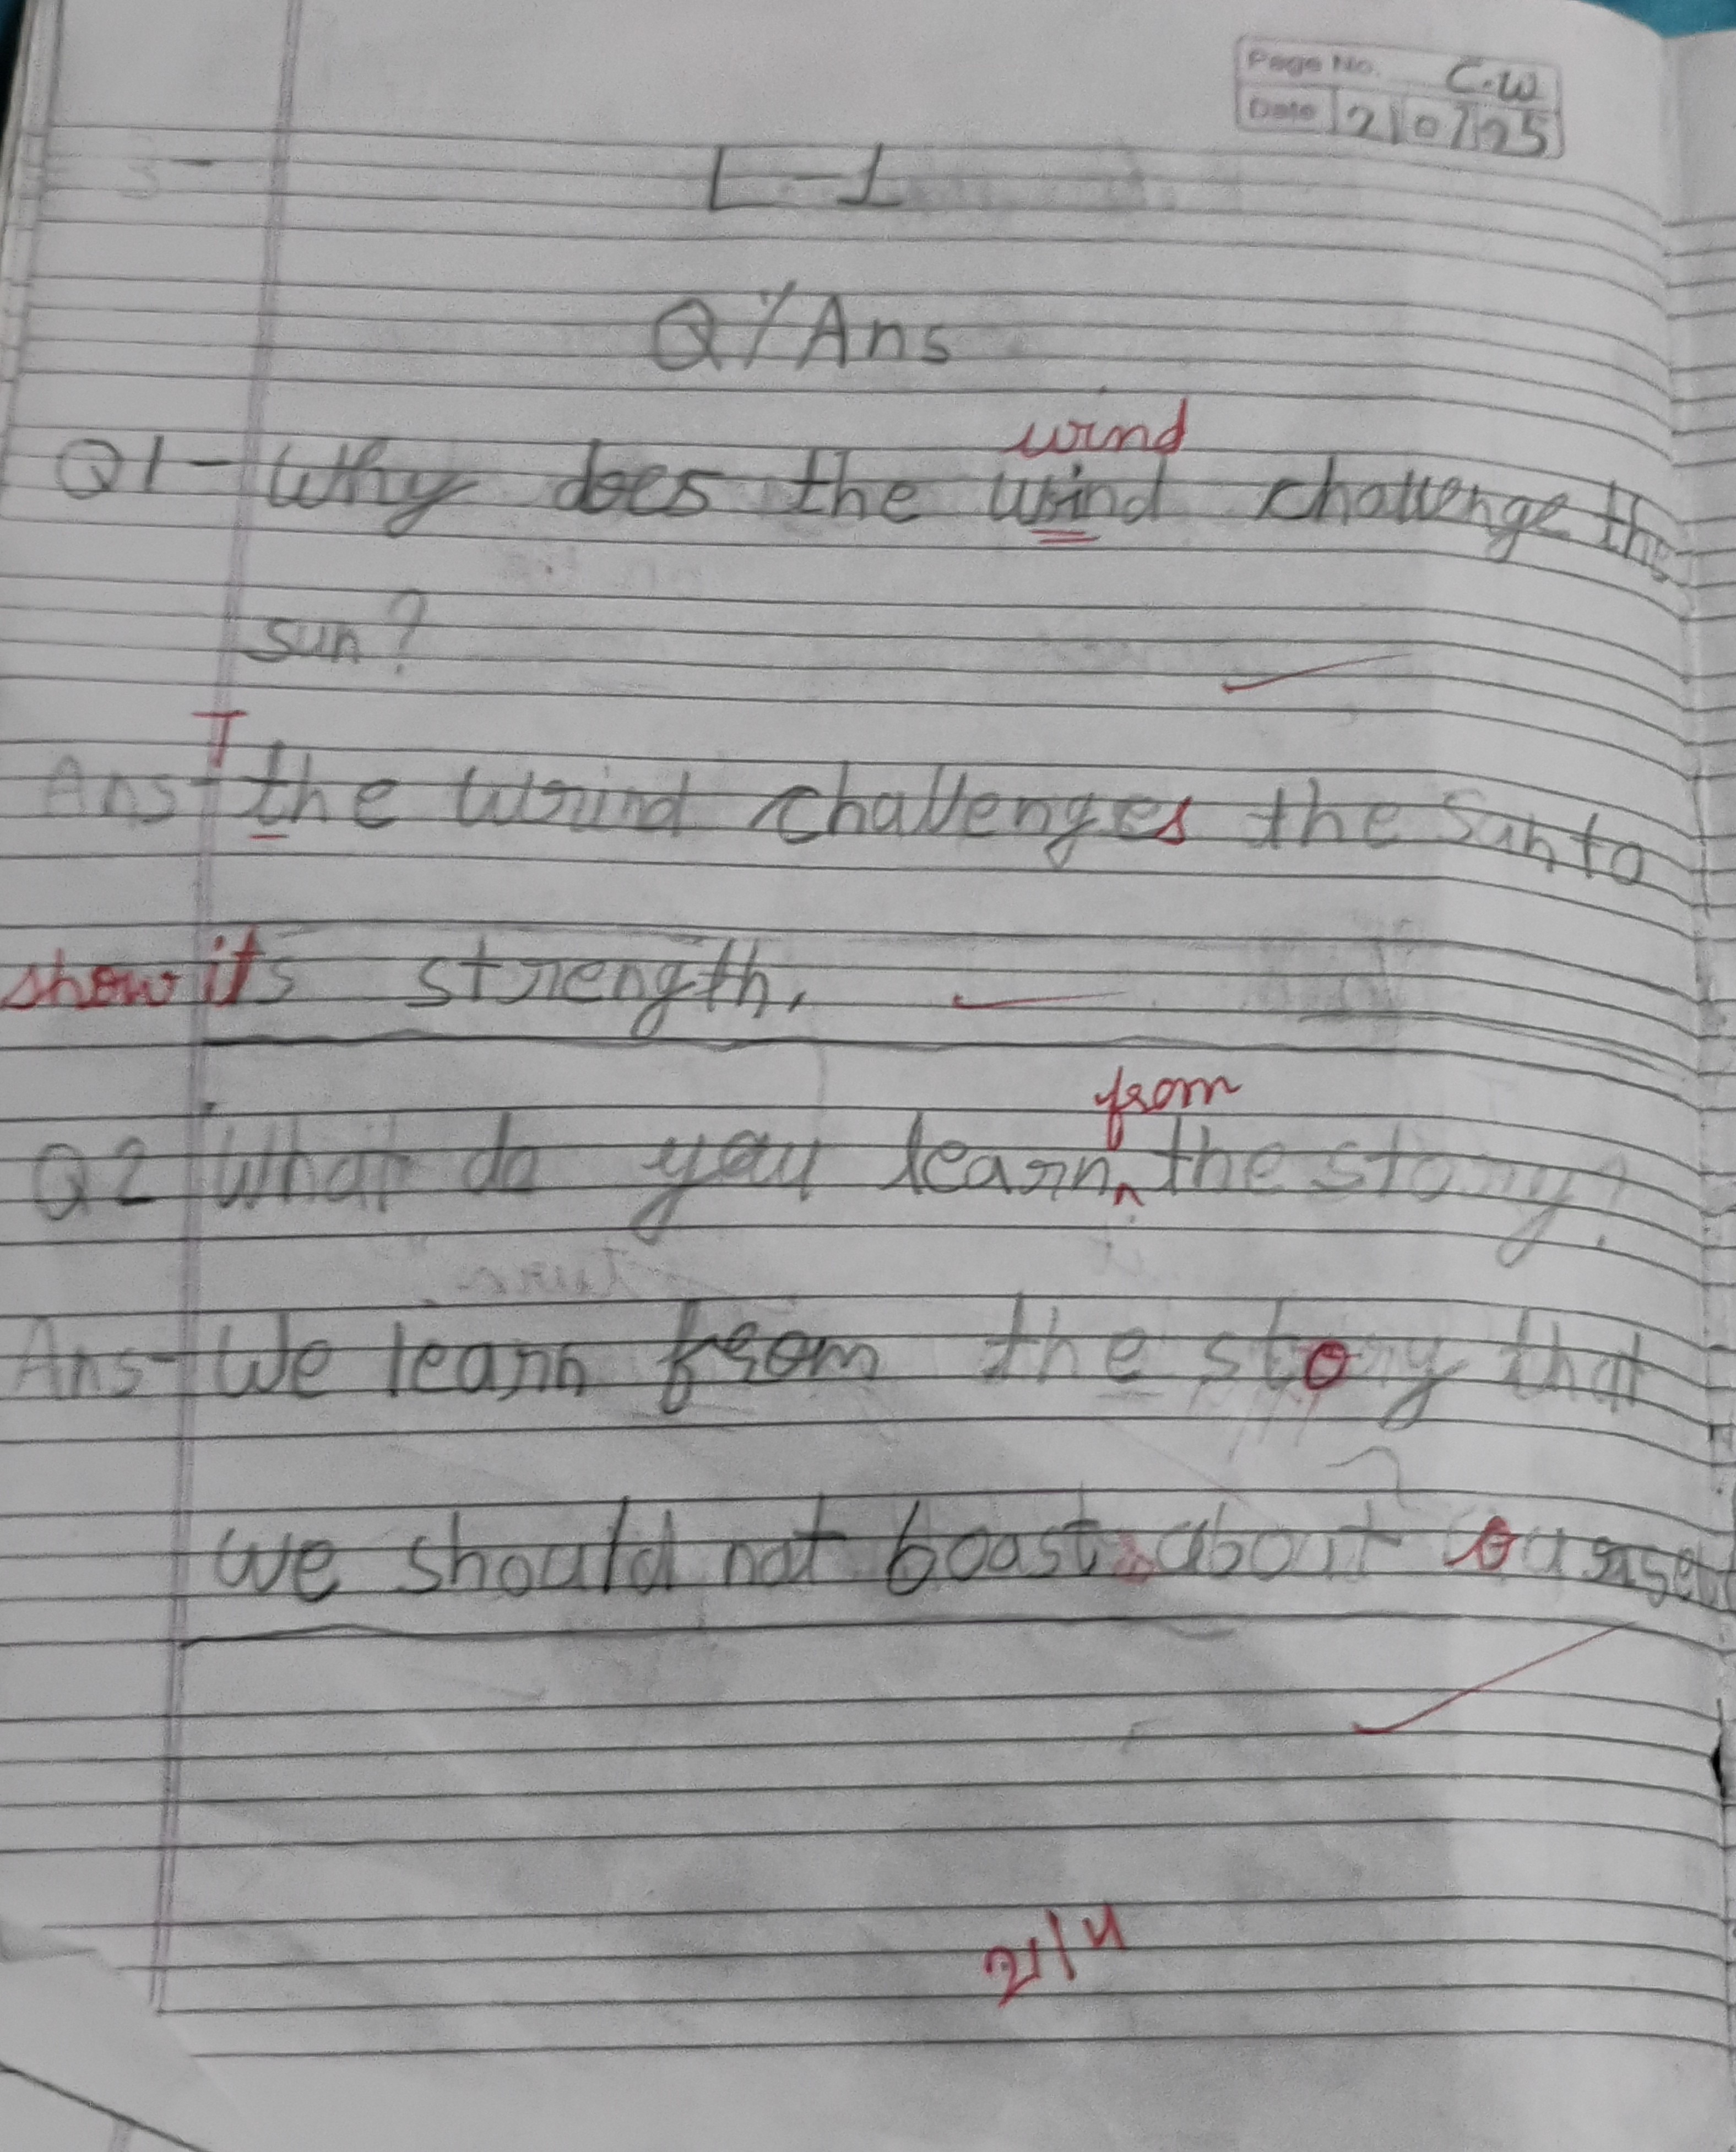 Page No. C.W
Date 21 07 25
L-1
Q/Ans
wind
Q1 - Why does the wind challenge the
sun?
T
Ans - the wrind challenges the sun to
show its strength.
from
Q2 What do you learn ^ the story?
Ans - We learn from the stoy that
we should not boast about